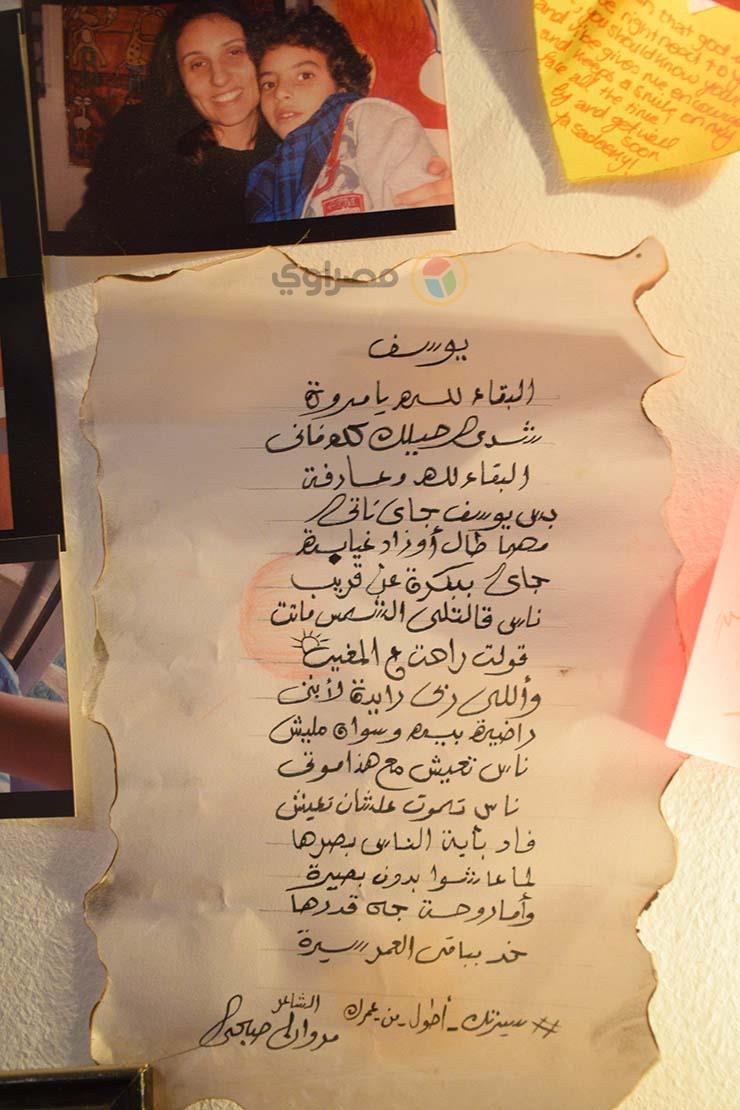 that god
be right next to you
and you should know your
life gives me encourag
and keeps a smile on my
face all the time!
by and get well
soon
ya sadeeky!
مصراوي
يوسف
البقاء لله يا مروة
شدى حيلك كله فانى
البقاء لله وعارفة
بس يوسف جاى تانى
مهما طال أو زاد غيابه
جاى بكرة عن قريب
ناس قالتلى الشمس ماتت
قولت راحت ع المغيب
وأللى زى رايدة لأبنى
راضية بيه وسوان مليش
ناس تعيش مع هذا موتى
ناس تموت علشان تعيش
فاد بأية الناس بصرها
لما عاشوا بدون بصيرة
وأما روحت جه قدرها
خد بباقى العمر سيرة
#سيرتك_أطول_من_عمرك
الشاعر
مروان صباحى